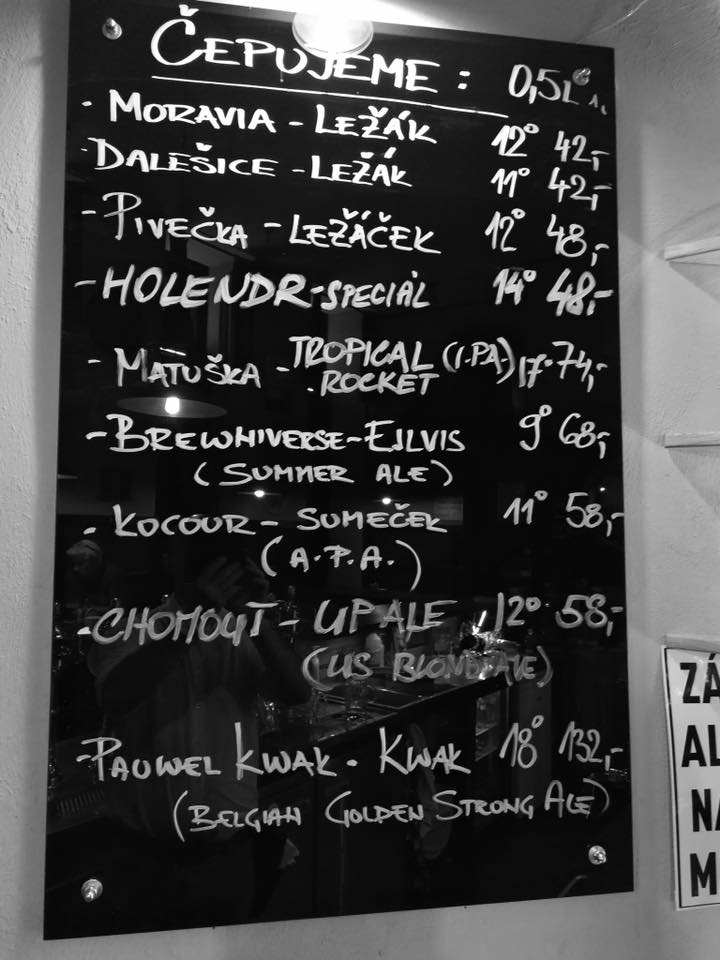 ČEPUJEME: 0,5L
- MORAVIA - LEŽÁK 12° 42,-
- DALEŠICE - LEŽÁK 11° 42,-
- PIVEČKA - LEŽÁČEK 12° 48,-
- HOLENDR - SPECIÁL 14° 48,-
- MATUŠKA - TROPICAL (I.PA.) 17° 74,-
ROCKET
- BREWNIVERSE - EJLVIS 9° 68,-
(SUMMER ALE)
- KOCOUR - SUMEČEK 11° 58,-
(A.P.A.)
- CHOMOUT - UP ALE 12° 58,-
(US BLOND ALE)
- PAUWEL KWAK - KWAK 18° 132,-
(BELGIAN GOLDEN STRONG ALE)
ZÁ
AL
NA
M